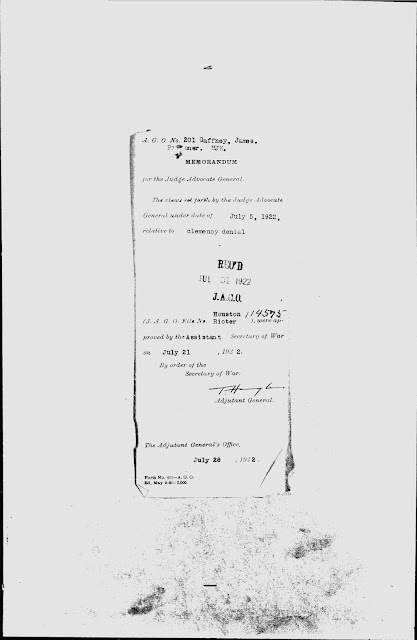 A. G. O. No. 201 Gaffney, James.
MEMORANDUM
for the Judge Advocate General.
The views set forth by the Judge Advocate
General under date of July 5, 1922,
relative to clemency denial
REC'D
JUL 31 1922
J.A.G.O.
Houston 114575
(J. A. G. O. File No. Rioter ), were ap-
proved by the Assistant Secretary of War
on July 21 , 1922.
By order of the
Secretary of War.
Adjutant General.
The Adjutant General's Office,
July 28 , 1922.
Form No. —A. G. O.
Ed. May